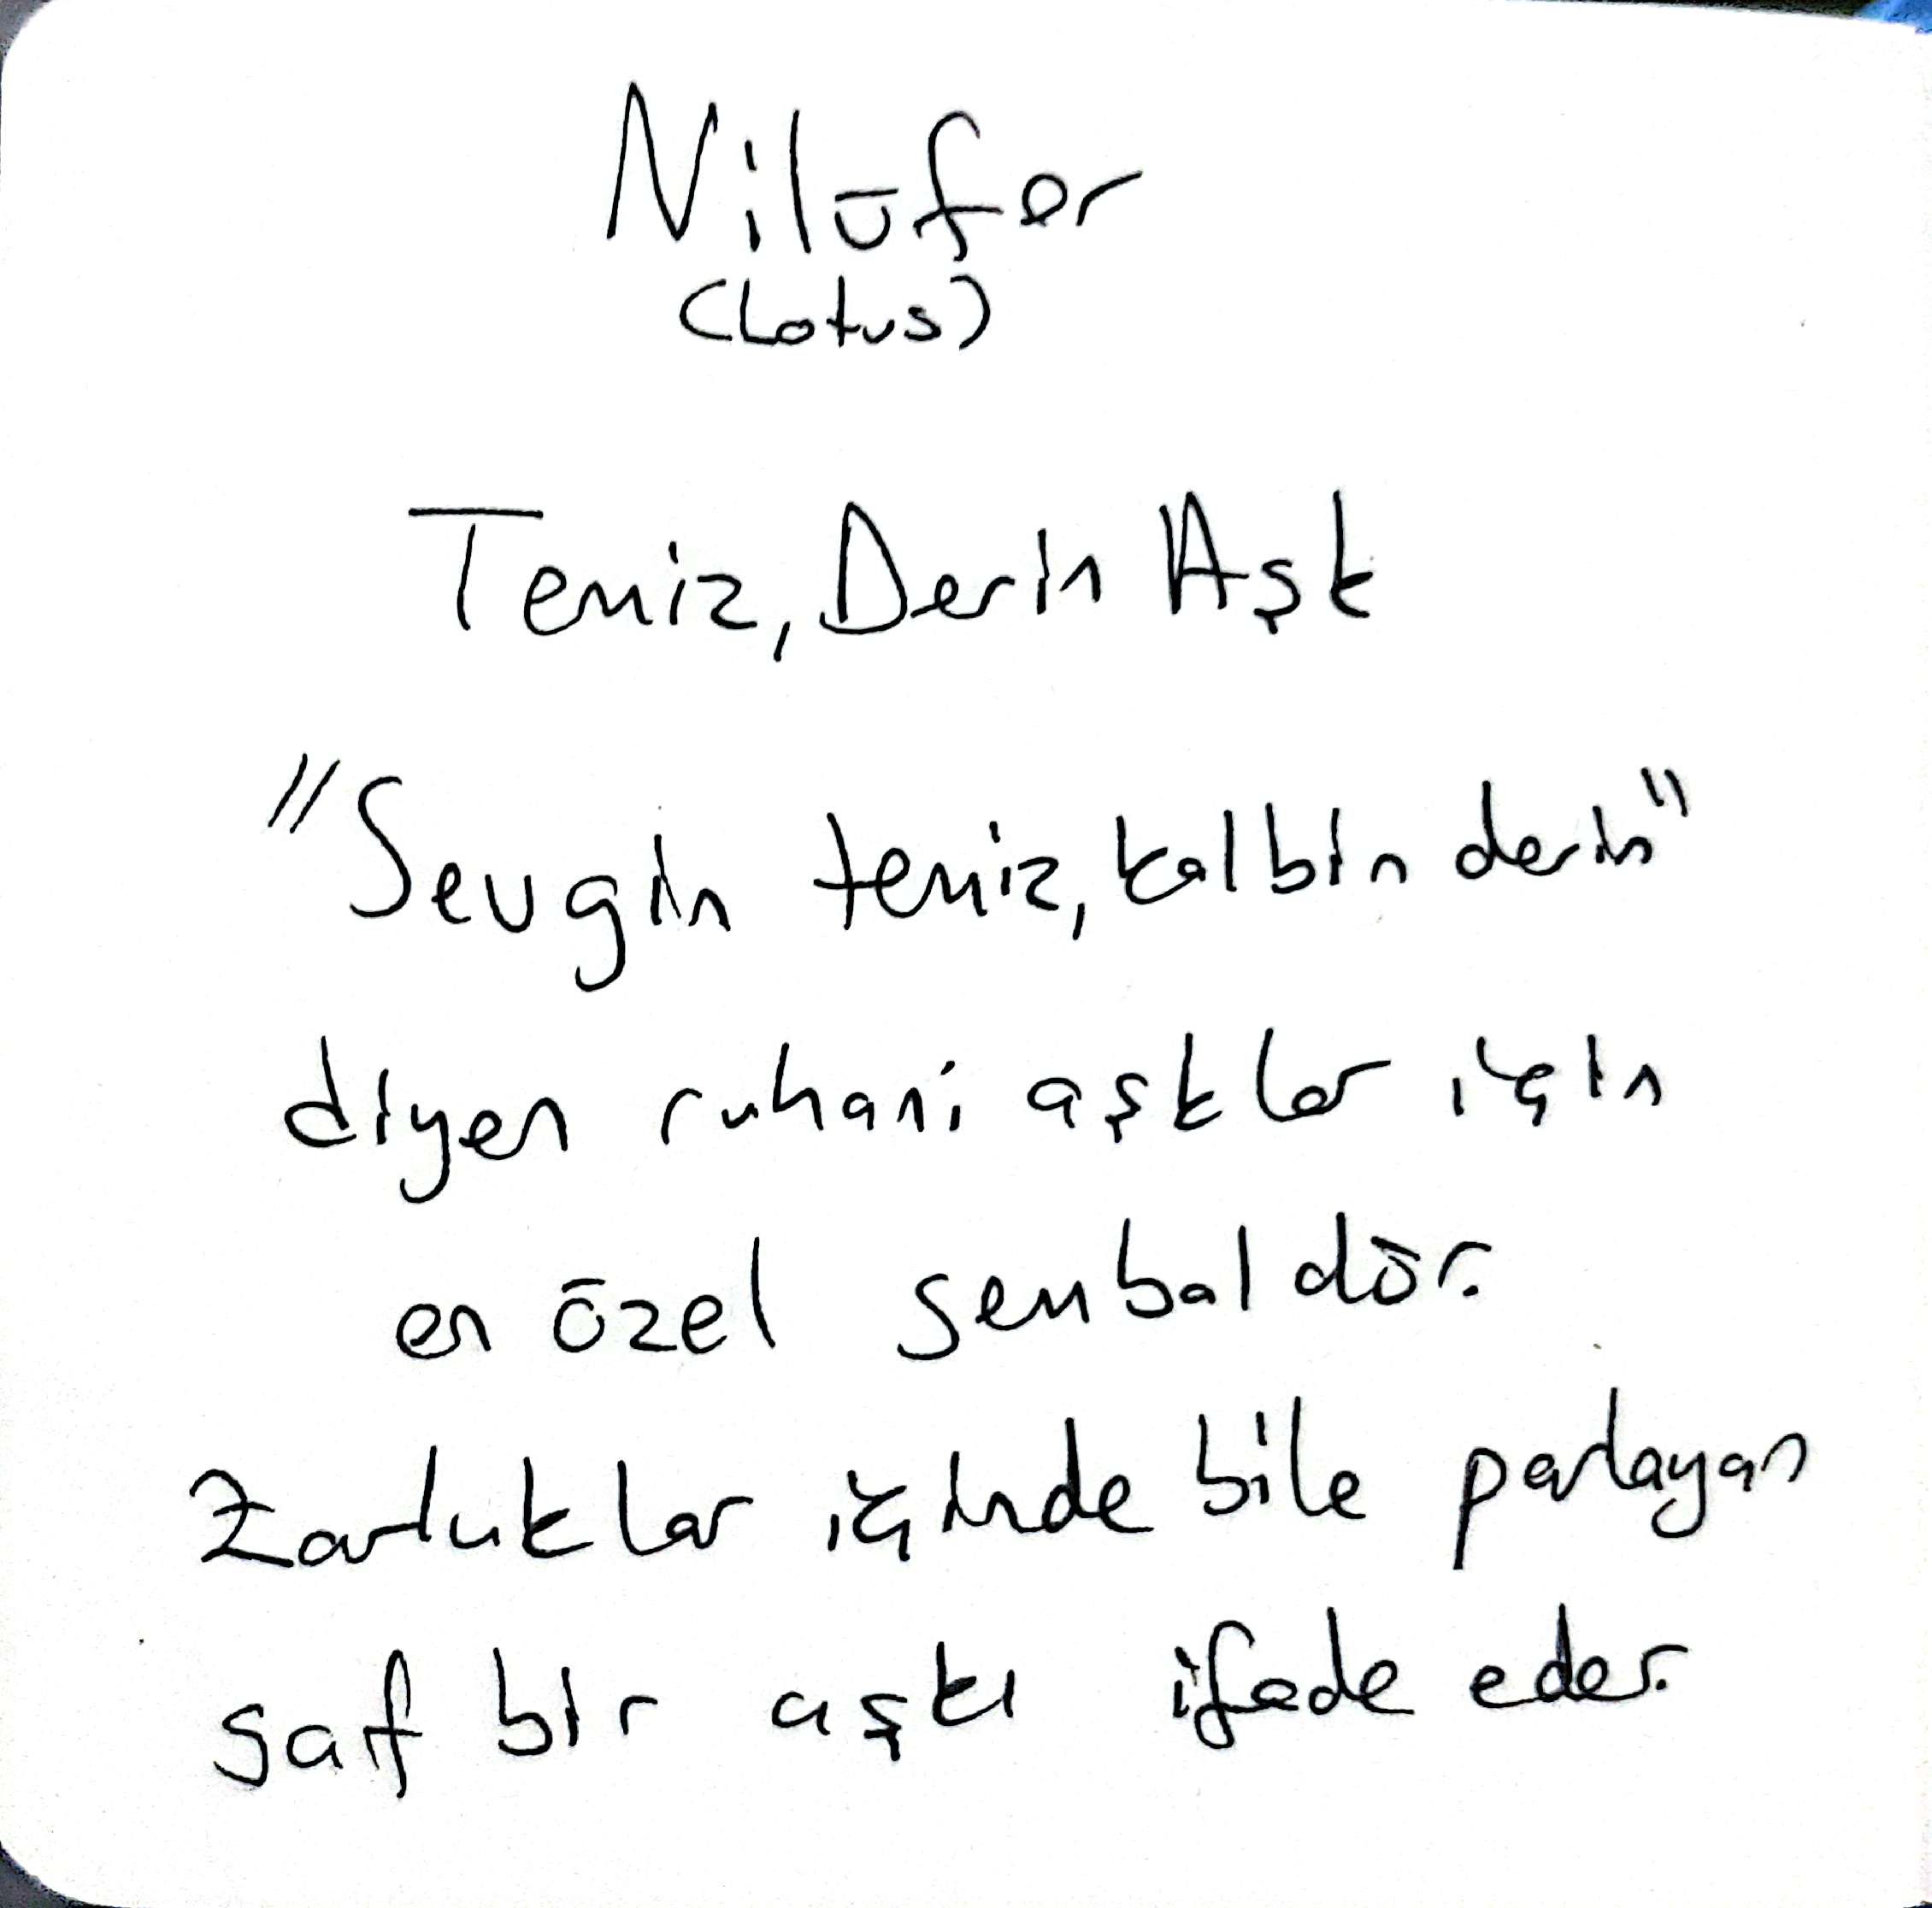 Nilüfer
(Lotus)
Temiz, Derin Aşk
"Sevgin temiz, kalbin derin"
diyen ruhani aşklar için
en özel semboldür.
Zorluklar içinde bile parlayan
saf bir aşkı ifade eder.